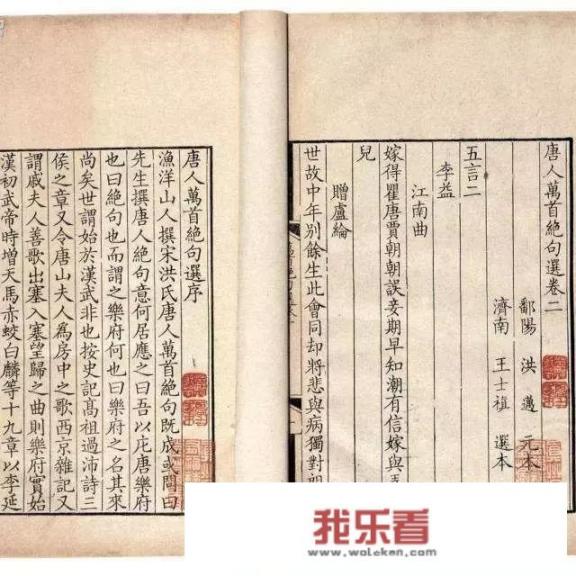 唐人萬首絕句選卷二
鄱陽 洪 邁 元本
濟南 王士 選本
五言二
李益
江南曲
嫁得瞿唐賈朝朝誤妾期早知潮有信嫁與
兒
贈盧綸
世故中年別餘生此會同却將悲與病獨對
唐人萬首絕句選序
漁洋山人撰宋洪氏唐人萬首絕句既成或問曰
先生撰唐人絕句意何居應之曰吾以庀唐樂府
也曰絕句也而謂之樂府何也曰樂府之名其來
尚矣世謂始於漢武非也按史記高祖過沛詩三
侯之章又令唐山夫人爲房中之歌西京雜記又
謂戚夫人善歌出塞入塞望歸之曲則樂府實始
漢初武帝時增天馬赤蛟白麟等十九章以李延
我乐看
www.woleken.com